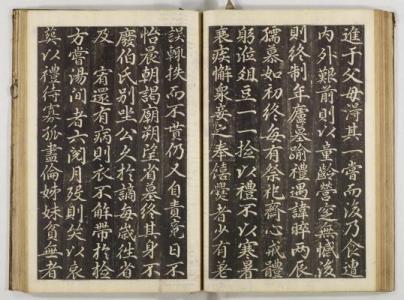 進于父母得其一嘗而後乃食遭
內外艱前則以童齡營窆無憾後
則終制年廬墓踰禮遇諱晬兩辰
孺慕如初終每有祭祀齋心戒體
躬涖俎豆一一以禮不以寒暑
衰疾懈衆妾之奉饎爨者少有老
誤輒抶而不貰仍又自責竟日不
怡晨朝謁廟朔望省墓終其身不
廢伯氏別坐公久於謫每歲往省
及 宥還有病則衣不解帶於檢
方嘗湯間者六閱月歿則斂以哀
葬以禮待寡孤盡倫姊妹貧無者